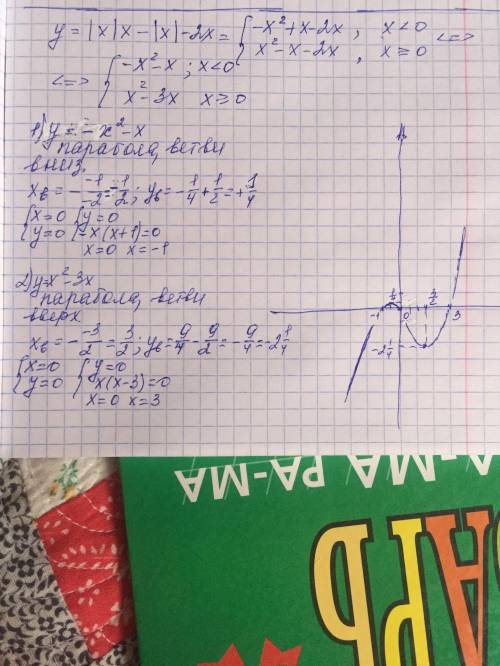 y = |x|x - |x| - 2x = { -x² + x - 2x, x < 0 <=>
x² - x - 2x, x ≥ 0
<=> { -x² - x; x < 0
x² - 3x x ≥ 0
1) y = -x² - x
парабола, ветви
вниз.
xв = - -1/-2 = -1/2; yв = -1/4 + 1/2 = +1/4
{ x = 0 { y = 0
y = 0 -x(x+1) = 0
x = 0 x = -1
2) y = x² - 3x
парабола, ветви
вверх
xв = - -3/2 = 3/2; yв = 9/4 - 9/2 = -9/4 = -2 1/4
{ x = 0 { y = 0
y = 0 x(x-3) = 0
x = 0 x = 3
3/2
-1
0
3
-2 1/4
А-МА РА-МА
ВАРЬ